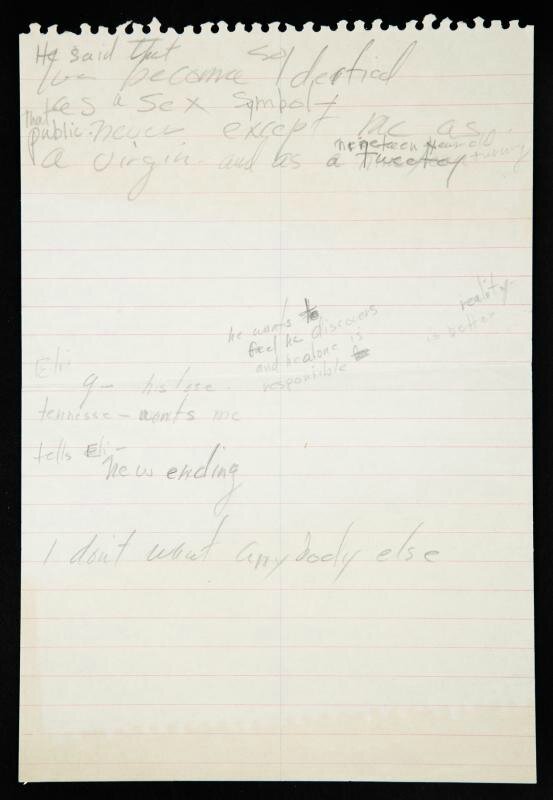 He said that
I've become so Identied
as a sex symbol
that
public never except me as
a virgin and as a
nineteen year old
he wants to
feel he discovers
and he alone is
responsible
reality
is better
Eli
tennesse – wants me
tells Eli –
new ending
I don't want anybody else